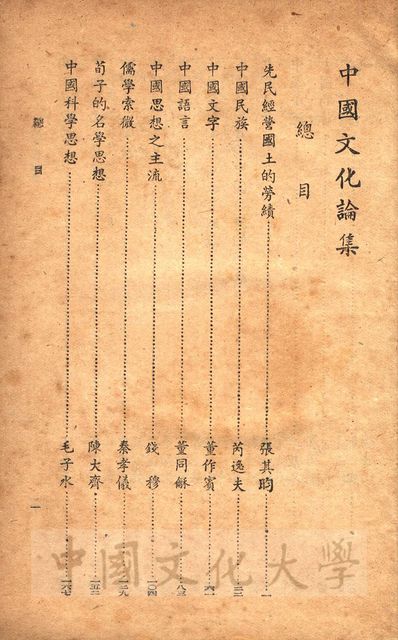 中國文化論集
總目
先民經營國土的勞績……張其昀……一
中國民族……芮逸夫……三三
中國文字……董作賓……六一
中國語言……董同龢……八三
中國思想之主流……錢穆……一〇四
儒學索微……秦孝儀……一二九
荀子的名學思想……陳大齊……一五三
中國科學思想……毛子水……一六七
總目
一
中國文化大學